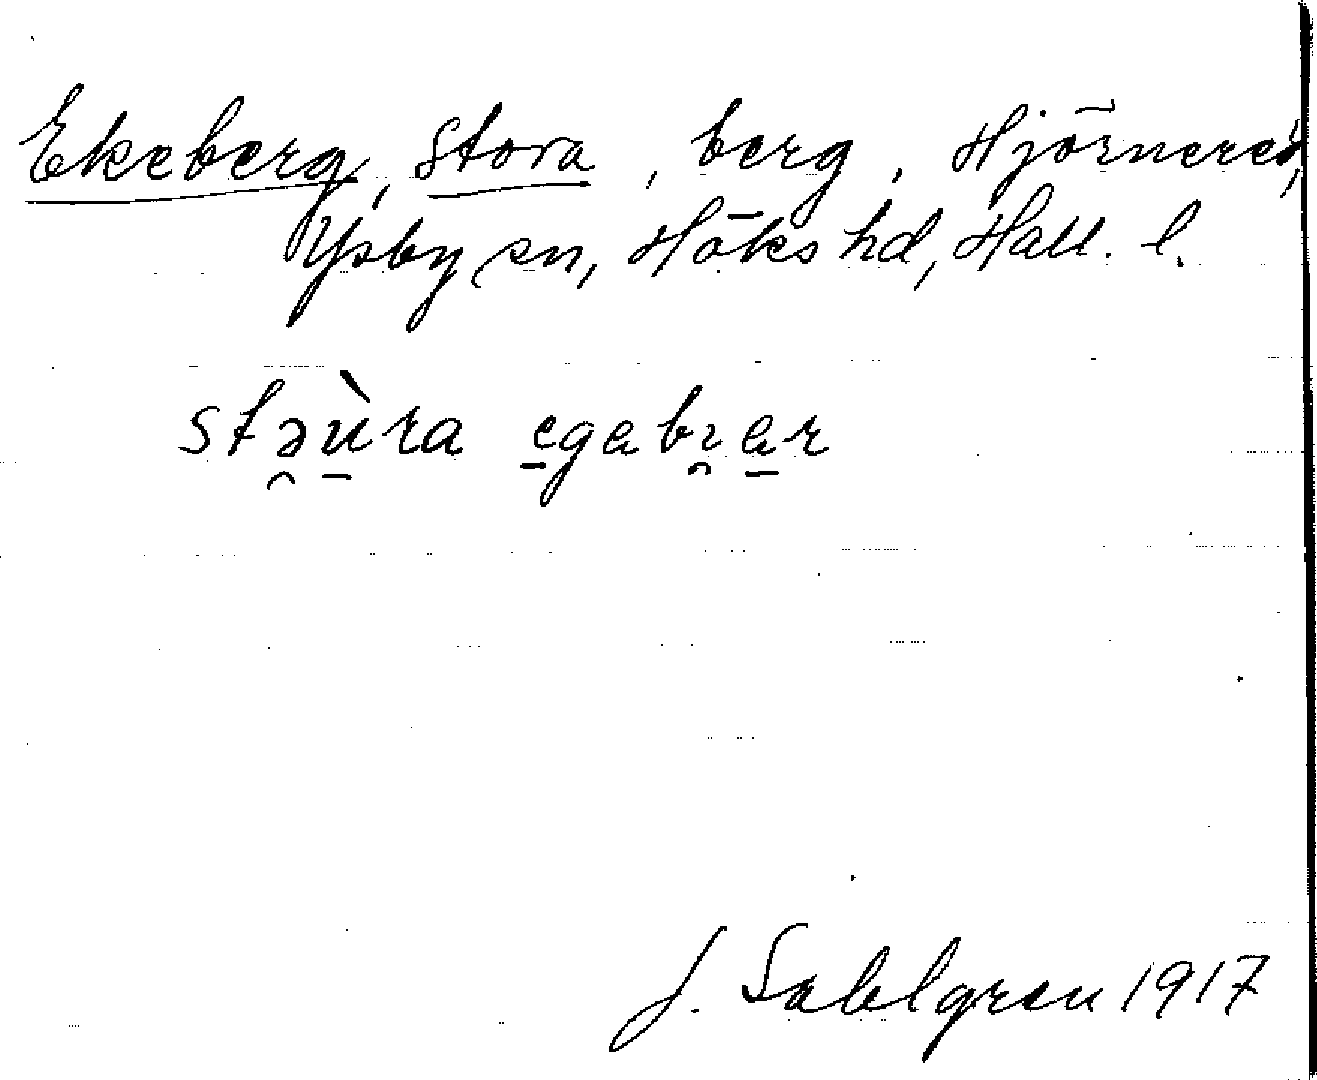 Ekeberg, Stora, berg, Hjörnered,
Ysby sn, Höks hd, Hall. l.
stə̯ù̱ra e̱gabɿ̯a̱r
J. Sahlgren 1917